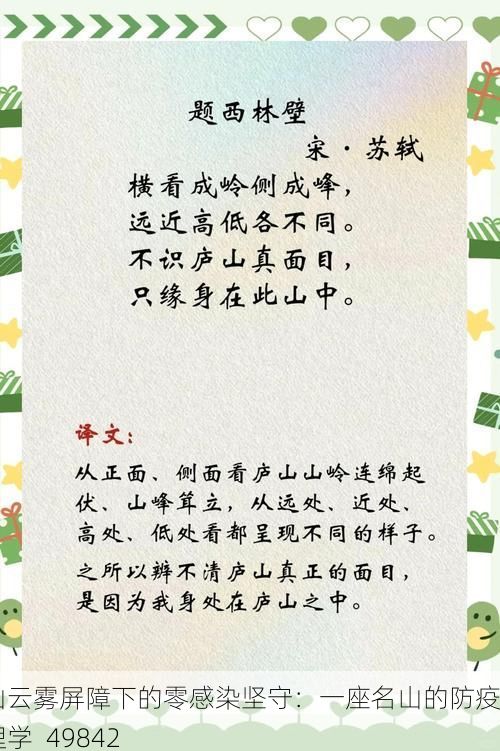 题西林壁
宋·苏轼
横看成岭侧成峰，
远近高低各不同。
不识庐山真面目，
只缘身在此山中。
译文：
从正面、侧面看庐山山岭连绵起
伏、山峰耸立，从远处、近处、
高处、低处看都呈现不同的样子。
之所以辨不清庐山真正的面目，
是因为我身处在庐山之中。
山云雾屏障下的零感染坚守：一座名山的防疫
理学 49842